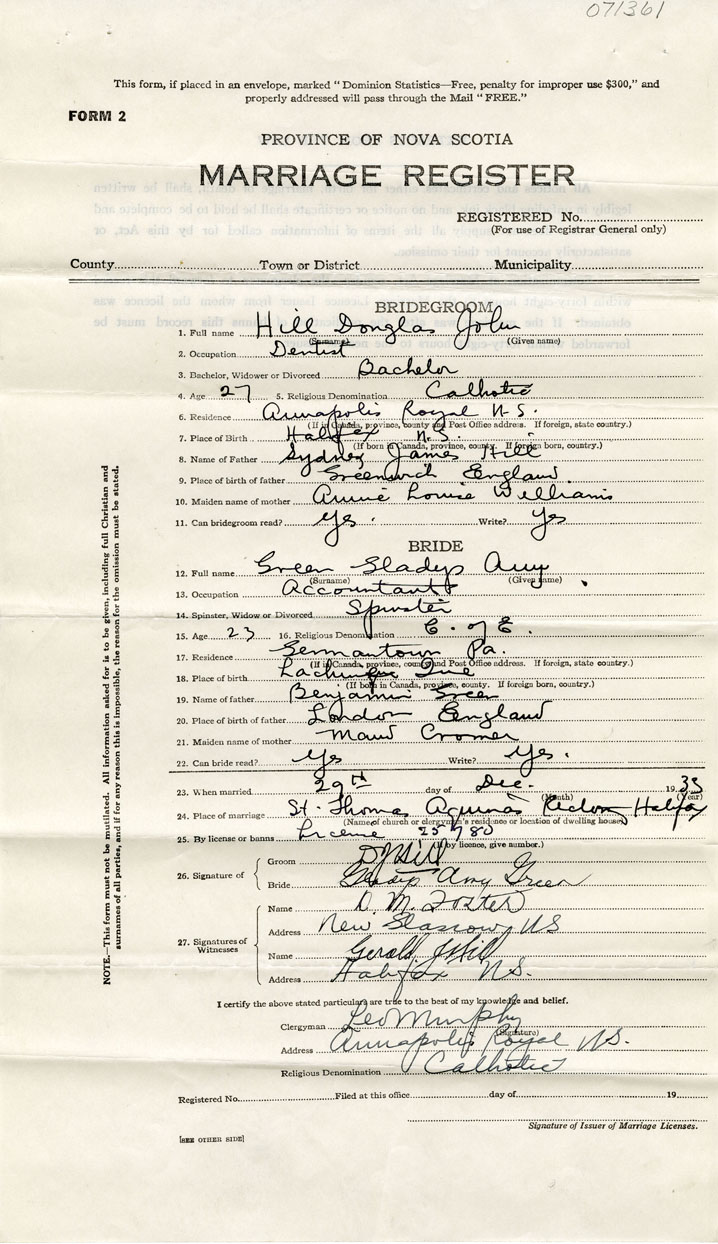 071361
This form, if placed in an envelope, marked "Dominion Statistics—Free, penalty for improper use $300," and
properly addressed will pass through the Mail "FREE."
FORM 2
PROVINCE OF NOVA SCOTIA
MARRIAGE REGISTER
REGISTERED No.
(For use of Registrar General only)
County Town or District Municipality
BRIDEGROOM
1. Full name Hill Douglas John
(Surname) (Given name)
2. Occupation Dentist
3. Bachelor, Widower or Divorced Bachelor
4. Age 27 5. Religious Denomination Catholic
6. Residence Annapolis Royal N.S.
(If in Canada, province, county and Post Office address. If foreign, state country.)
7. Place of Birth Halifax N.S.
(If born in Canada, province, county. If foreign born, country.)
8. Name of Father Sydney James Hill
9. Place of birth of father Greenwich England
10. Maiden name of mother Annie Louise Williams
11. Can bridegroom read? Yes. Write? Yes
BRIDE
12. Full name Green Gladys Amy
(Surname) (Given name)
13. Occupation Accountant
14. Spinster, Widow or Divorced Spinster
15. Age 23 16. Religious Denomination C. of E.
17. Residence Germantown Pa.
(If in Canada, province, county and Post Office address. If foreign, state country.)
18. Place of birth Lachine Que
(If born in Canada, province, county. If foreign born, country.)
19. Name of father Benjamin Green
20. Place of birth of father London England
21. Maiden name of mother Maud Cromer
22. Can bride read? Yes Write? Yes.
23. When married 29th day of Dec. 1935
(Month) (Year)
24. Place of marriage St. Thomas Aquinas Halifax
(Name of church or clergyman's residence or location of dwelling house)
25. By license or banns License 25780
(If by licence, give number.)
26. Signature of
Groom DJ Hill
Bride Gladys Amy Green
27. Signatures of Witnesses
Name D. M. Foster
Address New Glasgow NS
Name Gerald J Hill
Address Halifax N.S.
I certify the above stated particulars are true to the best of my knowledge and belief.
Clergyman Leo Murphy
(Signature)
Address Annapolis Royal N.S.
Religious Denomination Catholic
Registered No. Filed at this office day of 19
Signature of Issuer of Marriage Licenses.
[SEE OTHER SIDE]
NOTE.—This form must not be mutilated. All information asked for is to be given, including full Christian and
surnames of all parties, and if for any reason this is impossible, the reason for the omission must be stated.